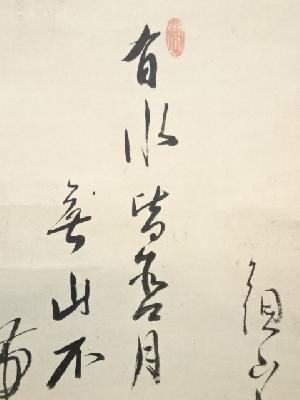 有水皆含月
無山不